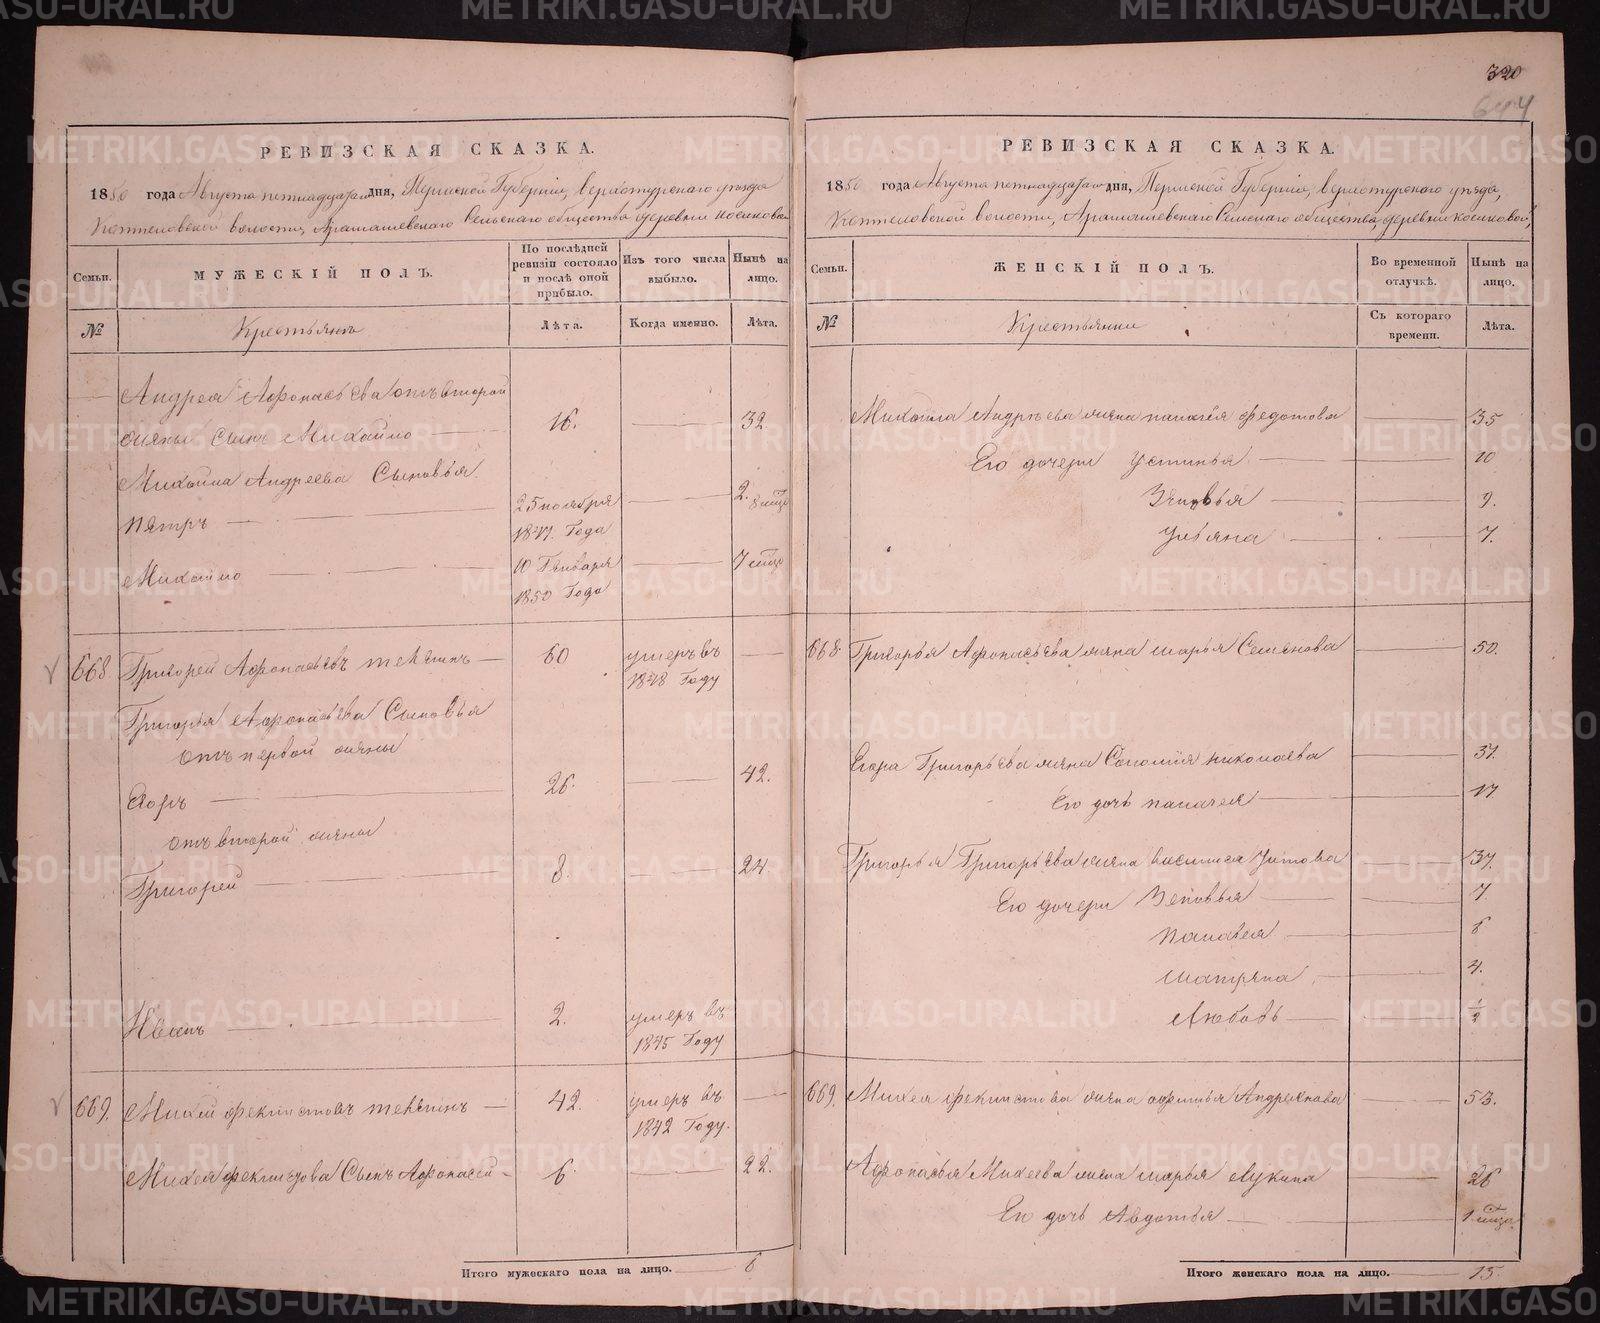 320
644
РЕВИЗСКАЯ СКАЗКА.
1850 года Августа петнадцатаго дня, Пермской Губерніи, верхотурскаго уезда
Коптеловской волости, Арамашевскаго Сельскаго общества деревни косиковой
Семьи.
МУЖЕСКІЙ ПОЛЪ.
По послѣдней ревизіи состояло и послѣ оной прибыло.
Изъ того числа выбыло.
Нынѣ на лицо.
№
Крестьяне
Лѣта.
Когда именно.
Лѣта.
Андрея Афонасьева отъ второй
жены сынъ Михайло 16. 32
Михайла Андреева Сыновья
Пятръ 25 ноября 1847. Года 2. 8 мѣц
Михайло 10 Генваря 1850 Года 7 мѣц
668 Григорей Афонасьевъ 60 умеръ въ 1848 Году
Григорья Афонасьева Сыновья
отъ первой жены
Егоръ 26. 42.
отъ второй жены
Григорей 8. 24
Иванъ 2. умеръ въ 1845 Году
669. Михей феклистовъ 42. умеръ въ 1842 Году.
Михея феклистова Сынъ Афонасей 6. 22.
Итого мужескаго пола на лицо. 6
РЕВИЗСКАЯ СКАЗКА.
1850 года Августа петнадцатаго дня, Пермской Губерніи, верхотурскаго уезда,
Коптеловской волости, Арамашевскаго Сельскаго общества, деревни косиковой,
Семьи.
ЖЕНСКІЙ ПОЛЪ.
Во временной отлучкѣ.
Нынѣ на лицо.
№
Крестьянки
Съ котораго времени.
Лѣта.
Михайла Андреева жена палагея федотова 35
Его дочери Устинья 10
Зеновья 9.
Ульяна 7.
668 Григорья Афонасьева жена марья Семенова 50.
Егора Григорьева жена Соломія николаева 37.
Его дочь палагея 17
Григорья Григорьева жена василиса Титова 37.
Его дочери Зеновья 7.
Палагея 6
матрена 4.
Любовь 1/2
669. Михея феклистова жена офимья Андреянова 53.
Афонасья Михеева жена марья Лукина 26
Его дочь Авдотья 1 мѣцъ
Итого женскаго пола на лицо. 15.
METRIKI.GASO-URAL.RU